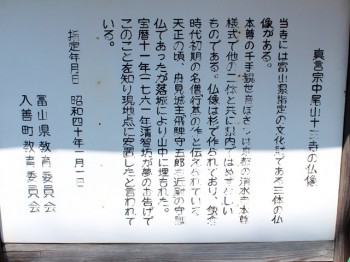 真言宗中尾山十三寺の仏像
当寺には富山県指定の文化財である三体の仏
像がある。
本尊の千手観世音ぼさつは京都の清水寺本尊
様式で他の二体と共に県内ではめずらしい
ものである。仏像は桧で作られており、鎌倉
時代初期の名僧行基の作と伝えられている。
天正の頃、舟見城主飛騨守五郎左近尉の守護
仏であったが落城により山中に埋もれた。
宝暦十一年(一七六一年)清智坊が夢のお告げで
このことを知り現地点に安置したと言われて
いる。
指定年月日 昭和四十年一月一日
富山県教育委員会
入善町教育委員会